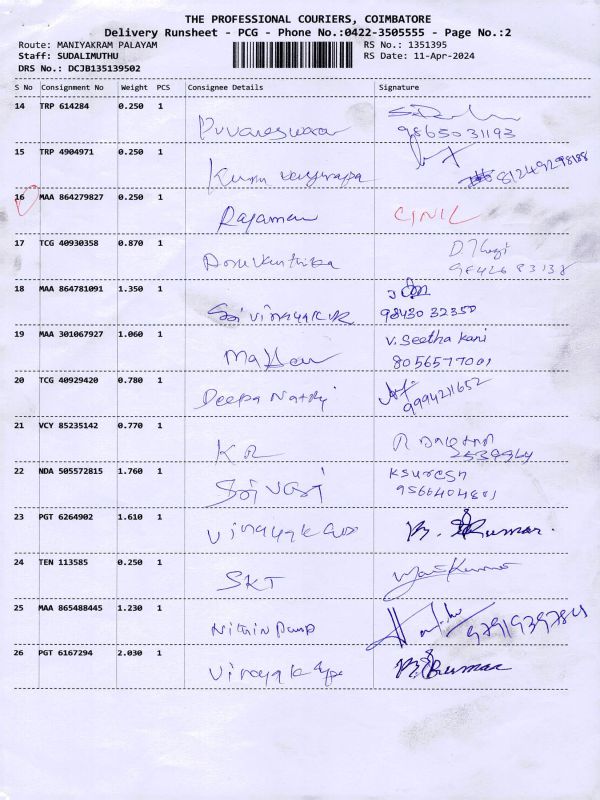 THE PROFESSIONAL COURIERS, COIMBATORE
Delivery Runsheet - PCG - Phone No.:0422-3505555 - Page No.:2
Route: MANIYAKRAM PALAYAM RS No.: 1351395
Staff: SUDALIMUTHU RS Date: 11-Apr-2024
DRS No.: DCJB135139502
S No Consignment No Weight PCS Consignee Details Signature
14 TRP 614284 0.250 1
Puvaneswaran 98650 31193
15 TRP 4904971 0.250 1
16 MAA 864279827 0.250 1
Rajaman CINIL
17 TCG 40930358 0.870 1
98426 83138
18 MAA 864781091 1.350 1
Sri Vinayak 98430 32350
19 MAA 301067927 1.060 1 V. Seetha Kani
8056577001
20 TCG 40929420 0.780 1
Deepa 9994211652
21 VCY 85235142 0.770 1
KR
22 NDA 505572815 1.760 1 K SURESH
Sri 9566404801
23 PGT 6264902 1.610 1
Kumar.
24 TEN 113585 0.250 1
SKT
25 MAA 865488445 1.230 1
Nithin 9791939784
26 PGT 6167294 2.030 1
Kumar